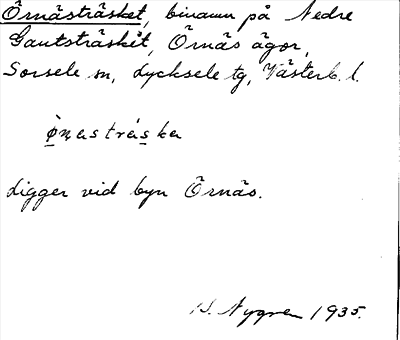 Örnästräsket, binamn på Nedre
Gautsträsket, Örnäs ägor,
Sorsele sn, Lycksele tg, Västerb. l.
ø̀n̥astrás̲ka
Ligger vid byn Örnäs.
Nygren 1935.